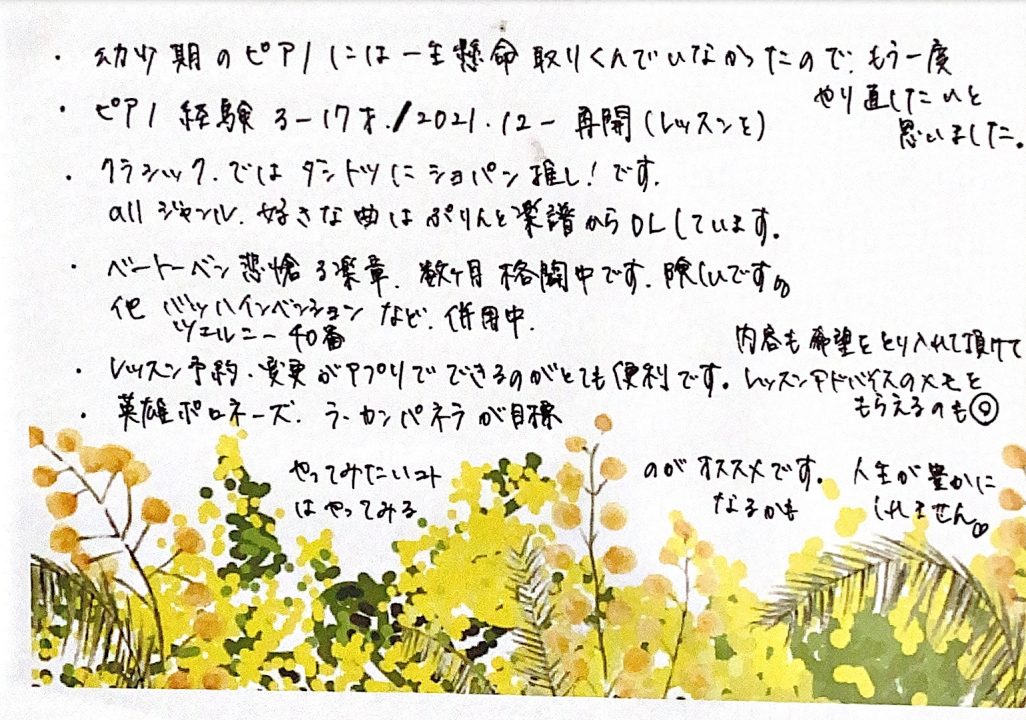 ・幼少期のピアノには一生懸命取りくんでいなかったので、もう一度
やり直したいと
思いました。
・ピアノ経験 3-17才./2021.12- 再開(レッスンを)
・クラシック.ではダントツにショパン推し!です.
allジャンル.好きな曲はぷりんと楽譜からDLしています.
・ベートーベン悲愴3楽章.数ヶ月格闘中です.険しいです。
他 バッハインベンション など.併用中.
ツェルニー40番
内容も希望をとり入れて頂けて
・レッスン予約・変更がアプリでできるのがとても便利です。レッスンアドバイスのメモを
もらえるのも◎
・英雄ポロネーズ.ラ・カンパネラが目標
やってみたいコト のがオススメです。人生が豊かに
はやってみる なるかも しれません♡